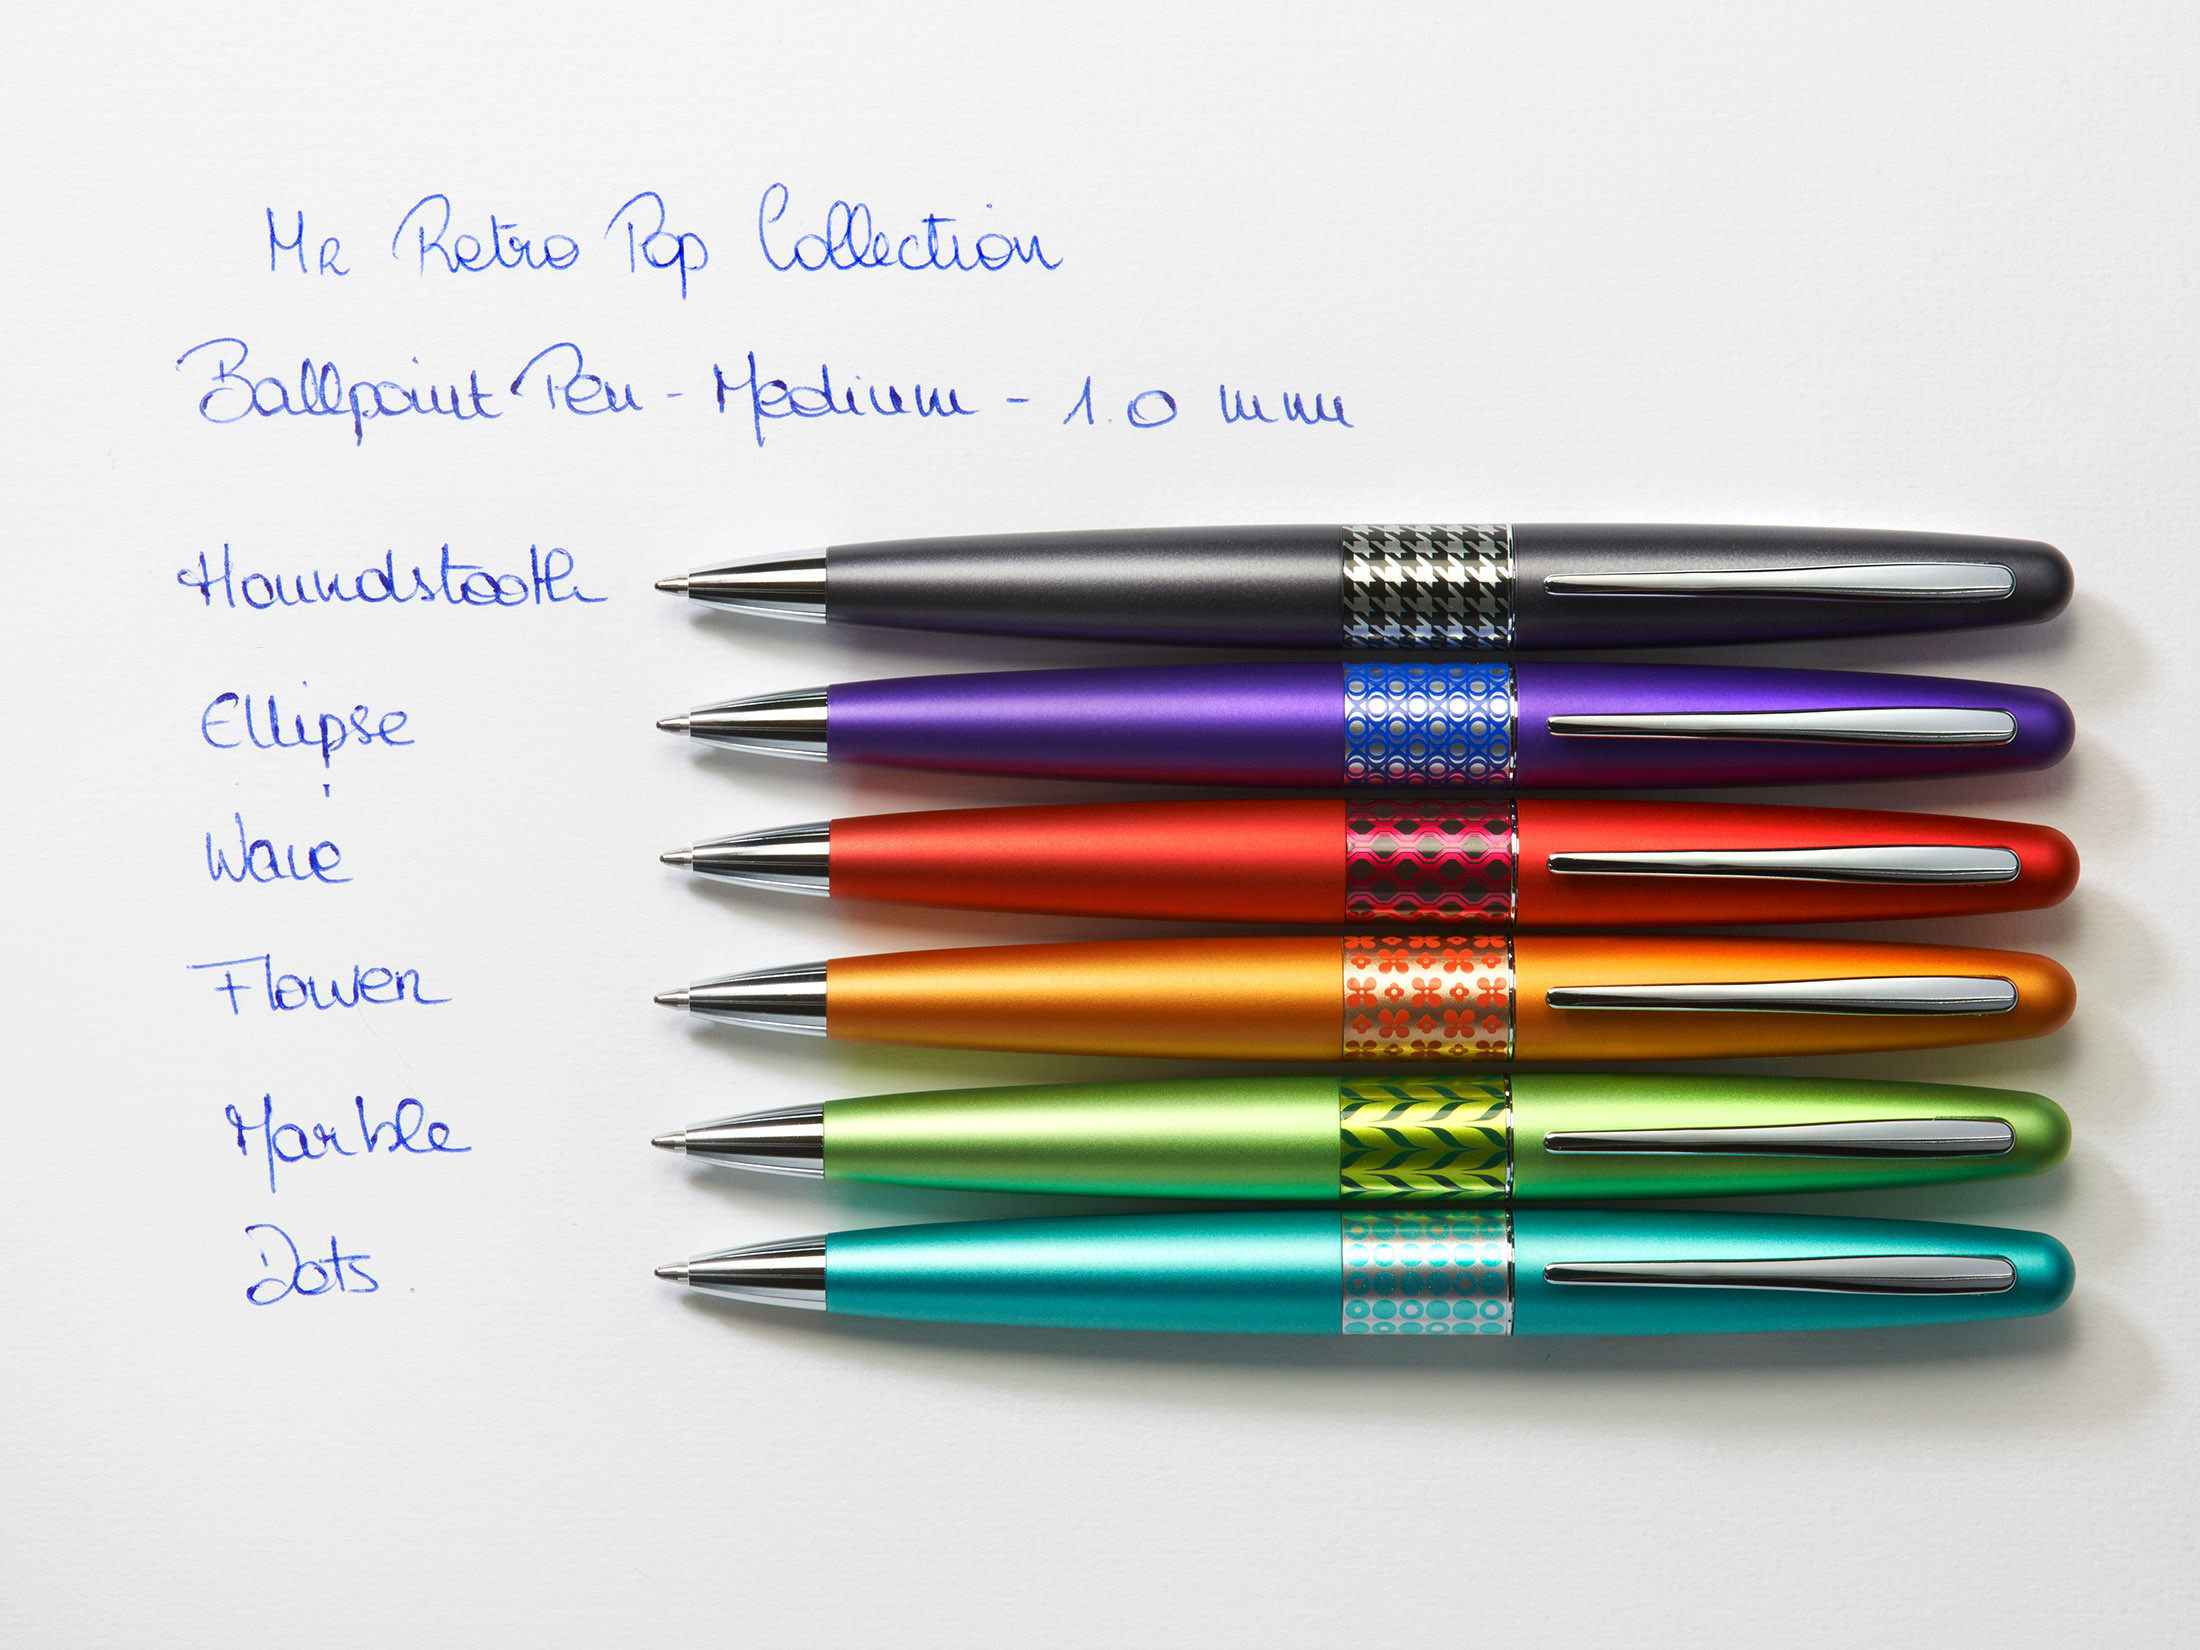 MR Retro Pop Collection
Ballpoint Pen - Medium - 1.0 mm
Houndstooth
Ellipse
Wave
Flower
Marble
Dots.